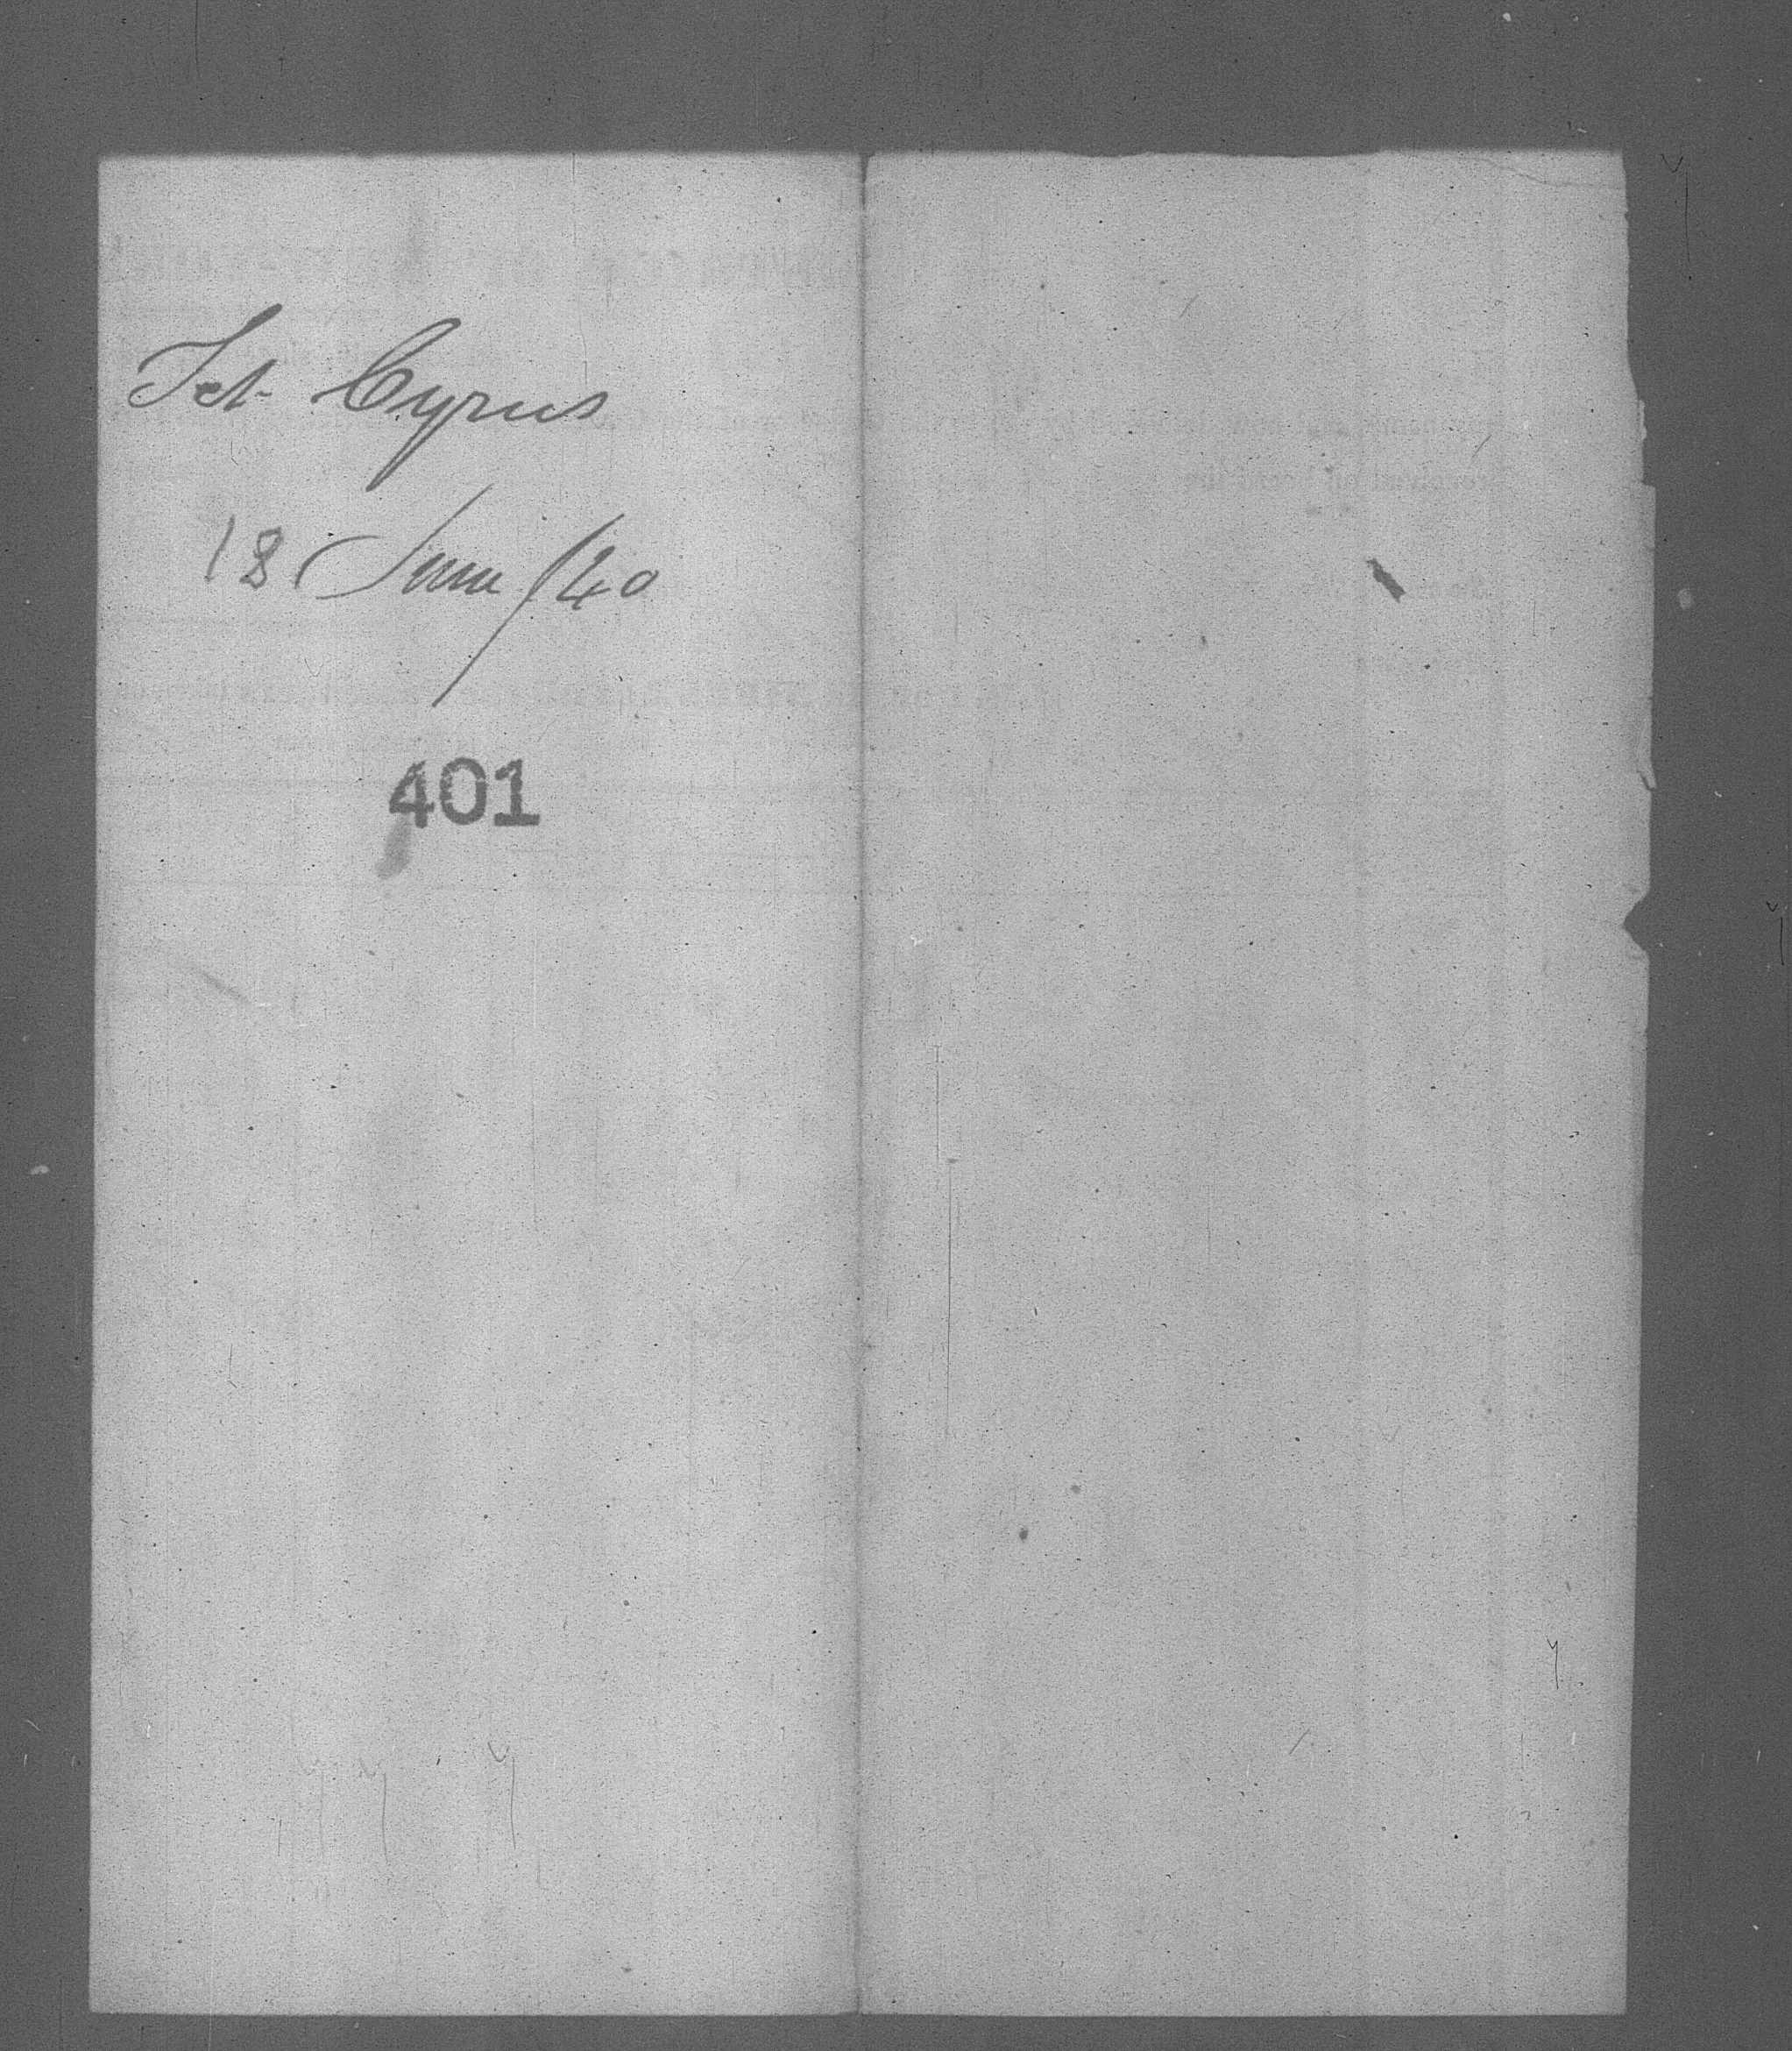 Jet Cyrus
18 June /40
401